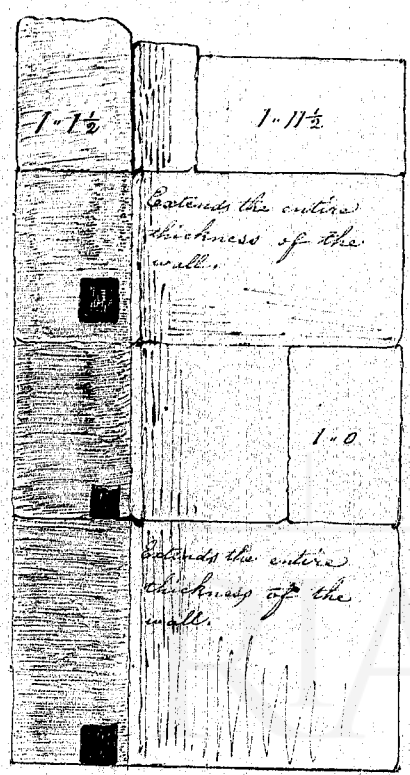 1" 1½
1" 11½
Extends the entire
thickness of the
wall.
1" 0
Extends the entire
thickness of the
wall.